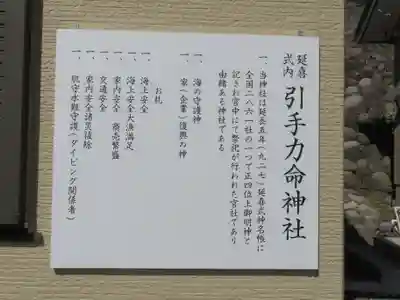 延喜式内
引手力命神社
一、当神社は延長五年(九二七)延喜式神名帳に
全国二八六一社の一つで正四位上御明神と
記され宮中にて祭祀が行われた官社であり
由緒ある神社である
一、海の守護神
一、家(企業)復興の神
お札
一、海上安全
一、海上安全大漁満足
一、家内安全 商売繁盛
一、交通安全
一、家内安全諸災祓除
一、肌守水難守護(ダイビング関係者)